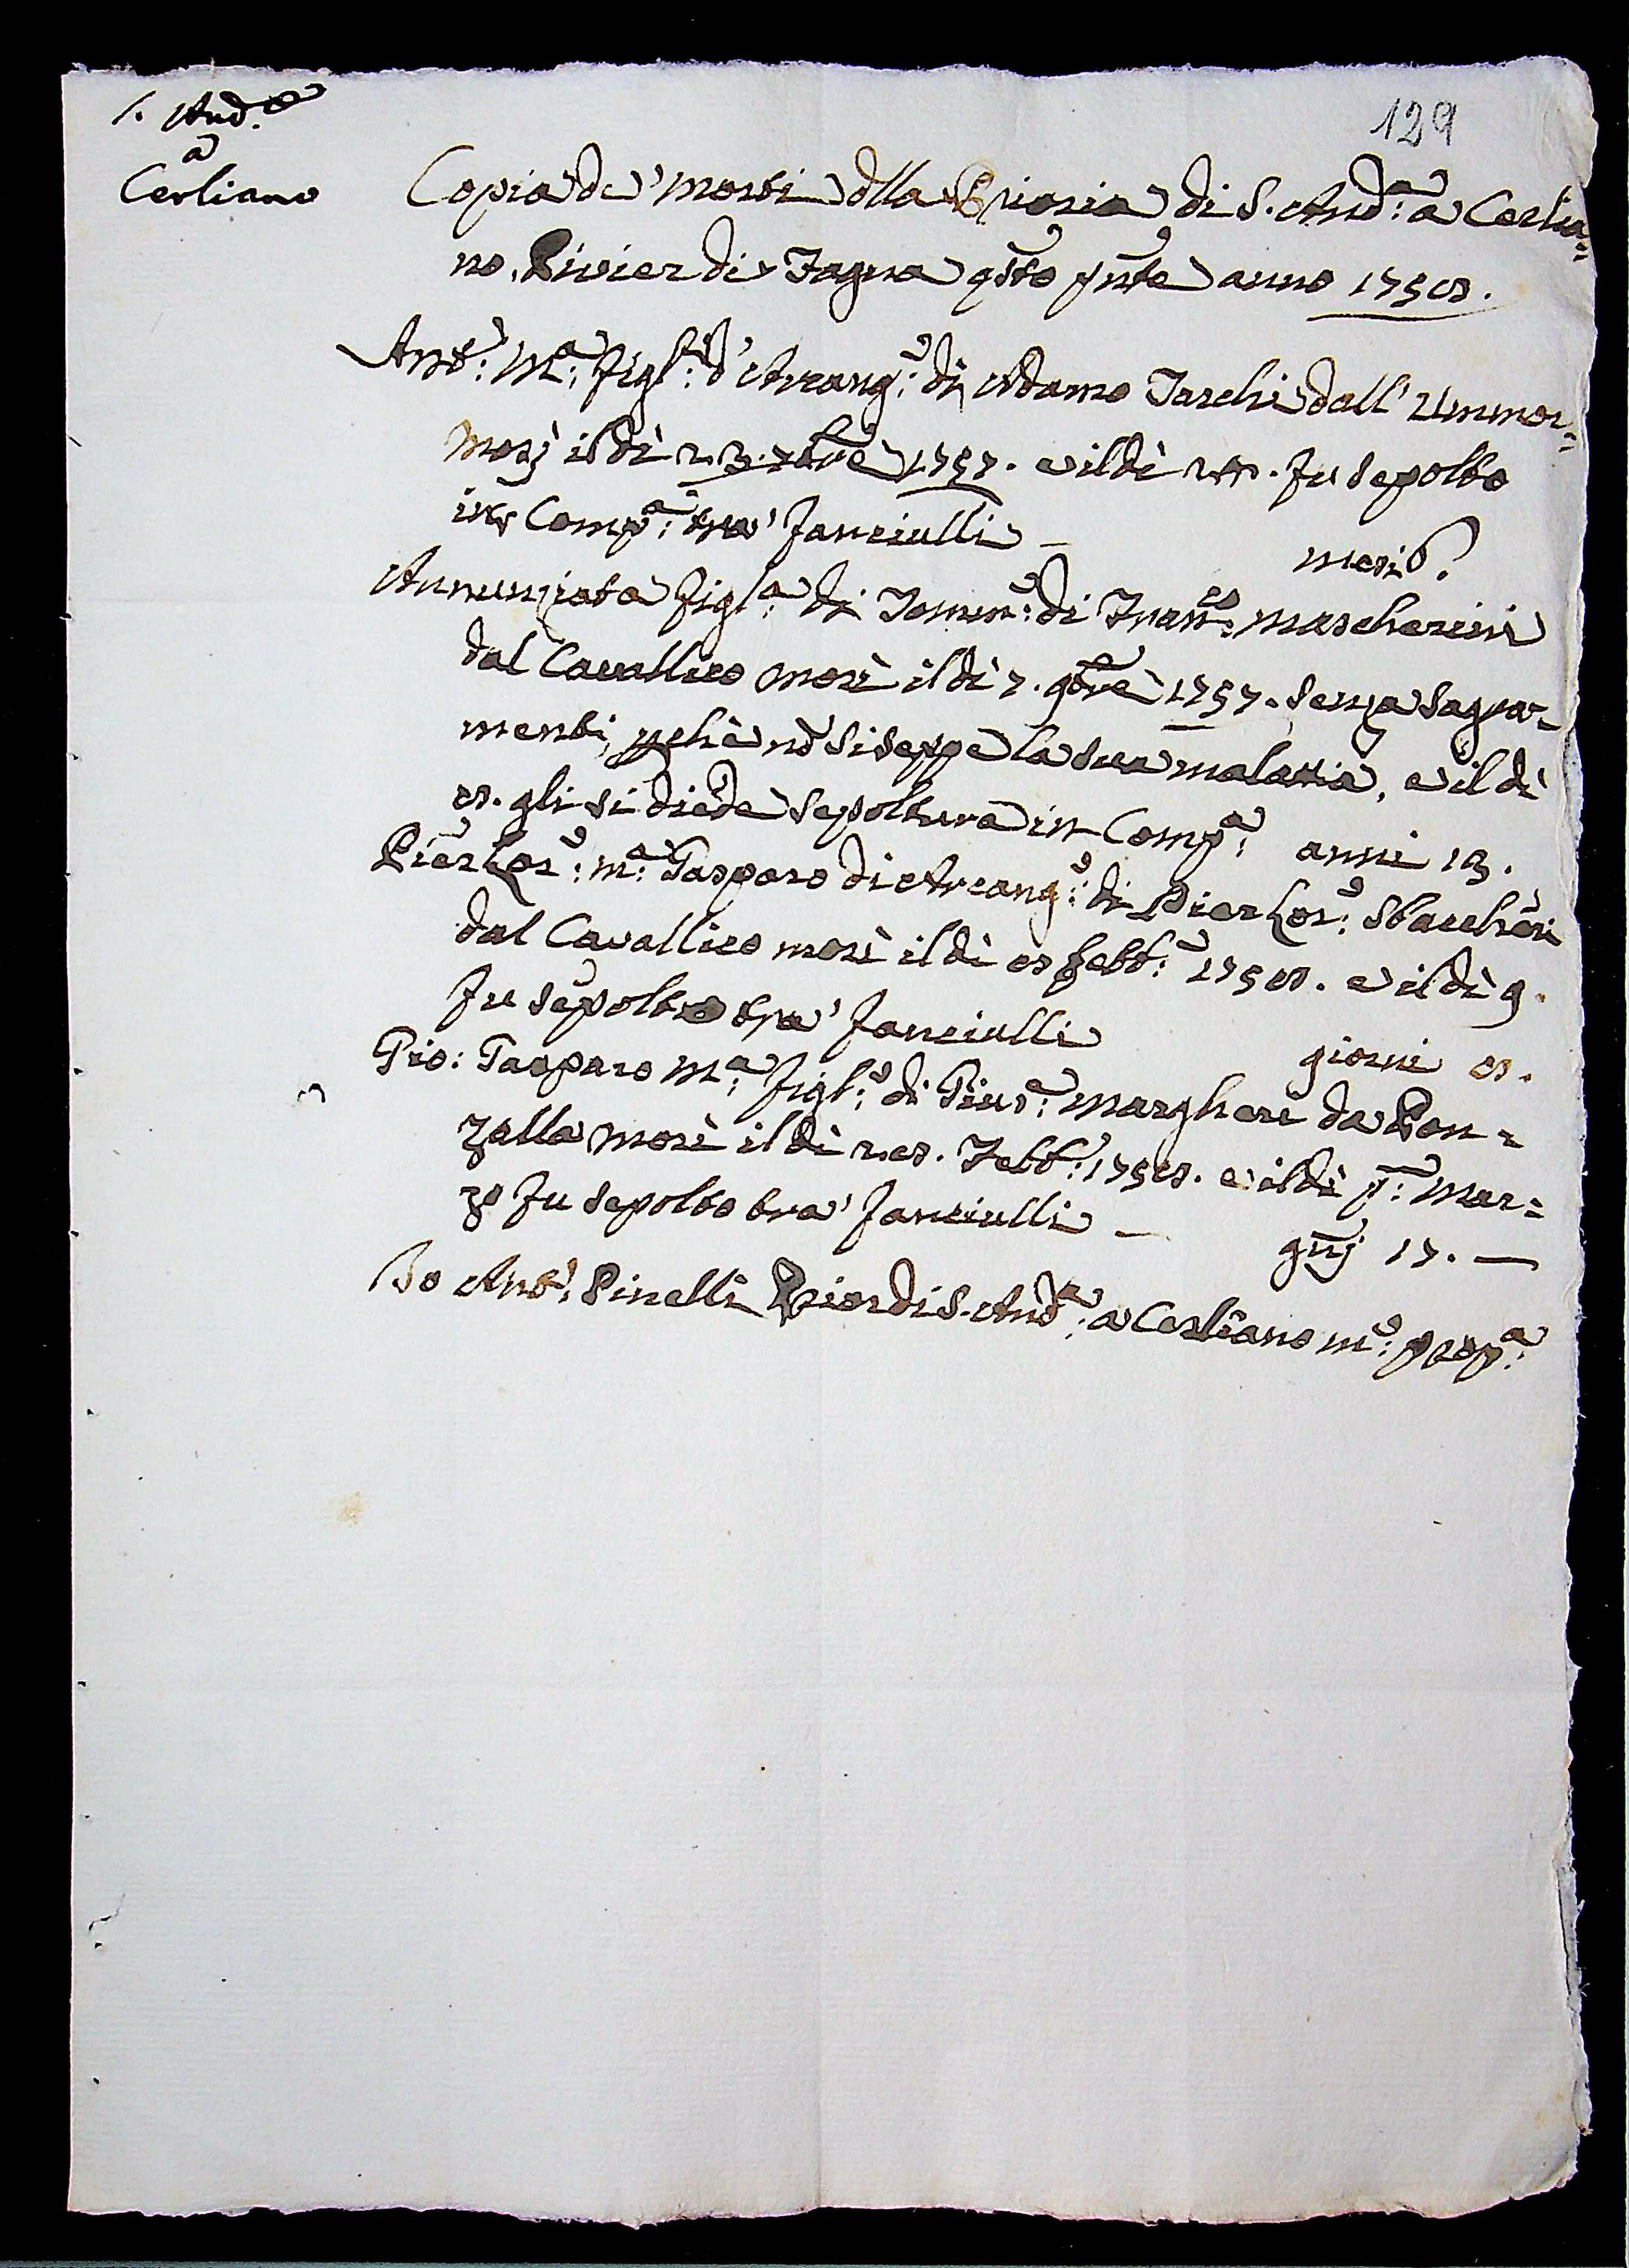 S. And.ª
a
Cerliano
129
Copia de' morti dlla Prioria di S. Andª: a Cerlia=
no, Pivier di Fagna qsto pnte anno 1758.
Antº: Mª: figlº: d'Arcangº: di Adamo Taschi dall'
morì il dì 23. 7bre 1757. e il dì 24. fu sepolto
in Compª: tra' fanciulli – mesi 6.
Annunziata figlª: di Tommº: di Francº Mascherini
dal Cavallico morì il dì 7. 9bre 1757. senza sagra=
menti, pchè nō si seppe la sua malattia, e il dì
8. gli si diede sepoltura in Compª: anni 13.
Pier Lorº: Mª: Gasparo di Arcangº: di Pier Lorº: Stacchini
dal Cavallico morì il dì 8 Febbº: 1758. e il dì 9.
fu sepolto tra' fanciulli giorni 8.
Gio: Gasparo Mª: figlº: di Giusª: Margheri da Ron=
zalla morì il dì 28. Febbº: 1758. e il dì pº: Mar=
zo fu sepolto tra' fanciulli – gñj 17. –
Io Antº: Pinelli Prior di S. Andª: a Cerliano mº: ppª: